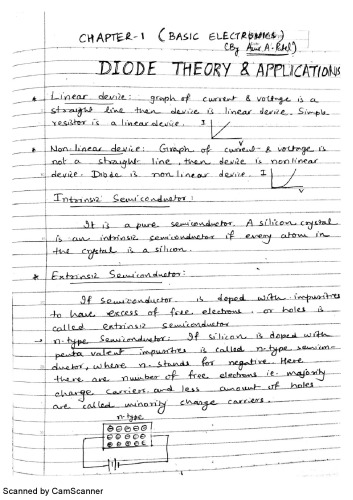 CHAPTER-1 (BASIC ELECTRONICS)
(By A. Patel)
DIODE THEORY & APPLICATIONS
* Linear device: graph of current & voltage is a
straight line then device is linear device. Simple
resistor is a linear device. I
V
* Non-linear device: Graph of current & voltage is
not a straight line, then device is nonlinear
device. Diode is nonlinear device. I
V
Intrinsic Semiconductor:
It is a pure semiconductor. A silicon crystal
is an intrinsic semiconductor if every atom in
the crystal is a silicon.
* Extrinsic Semiconductor:
If semiconductor is doped with impurities
to have excess of free electrons or holes is
called extrinsic semiconductor
→ n-type Semiconductor: If silicon is doped with
penta valent impurities is called n-type semicon-
ductor, where n- stands for negative. Here
there are number of free electrons ie. majority
charge carriers and less amount of holes
are called minority charge carriers.
n-type
Scanned by CamScanner